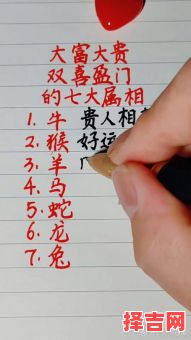 大富大贵
双喜盈门
的七大属相
1. 牛 贵人相
2. 猴 好运
3. 羊
4. 马
5. 蛇
6. 龙
7. 兔
择吉网
zejiwang.com